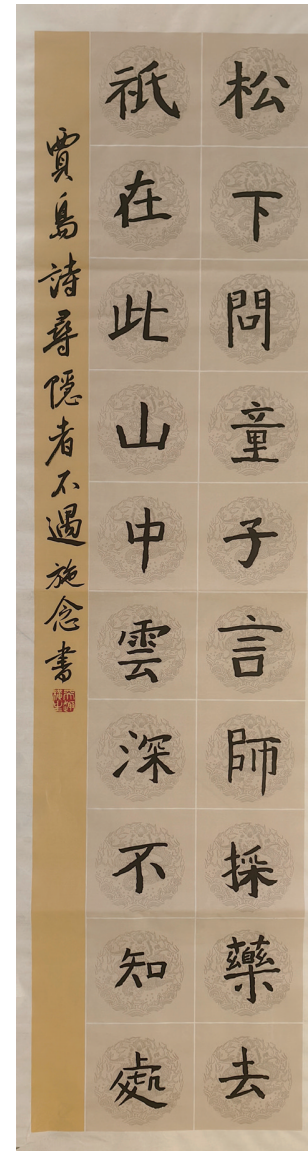 松下問童子言師採藥去
祇在此山中雲深不知處
賈島詩尋隱者不遇施念書